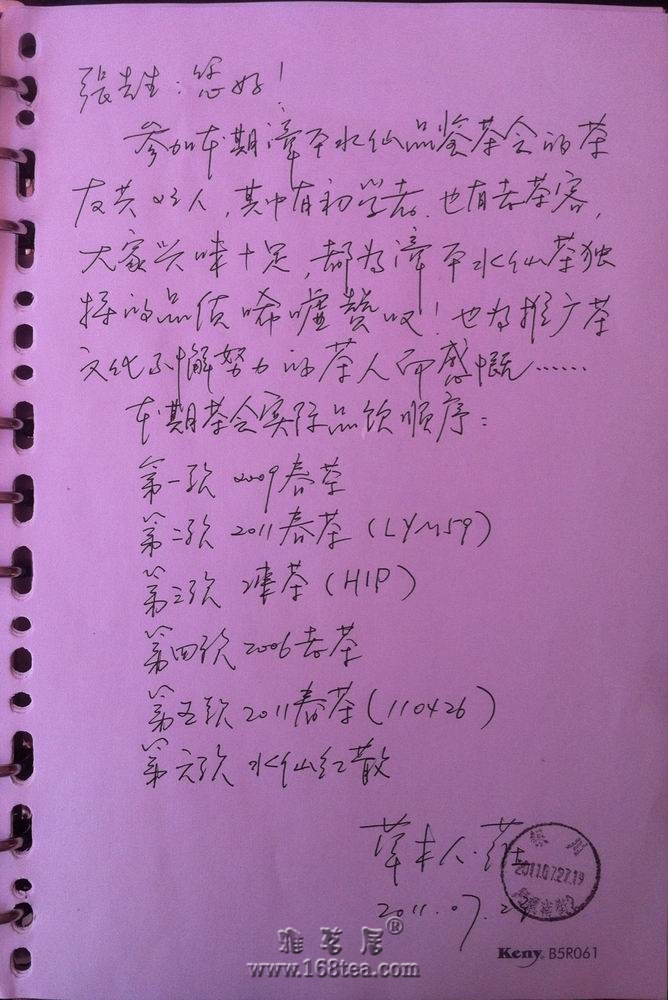 张先生：您好！
参加本期漳平水仙品鉴茶会的茶
友共 人，其中有初学者，也有老茶客，
大家兴味十足，都为漳平水仙茶独
特的品质唏嘘赞叹！也为推广茶
文化不懈努力的茶人而感慨……
本期茶会实际品饮顺序：
第一款 2009春茶
第二款 2011春茶（LYM59）
第三款 冻茶（H1P）
第四款 2006老茶
第五款 2011春茶（110426）
第六款 水仙红散
草木人·
2011.07.27.19
2011.07.27
雅茗居®
www.168tea.com
Keny B5R061